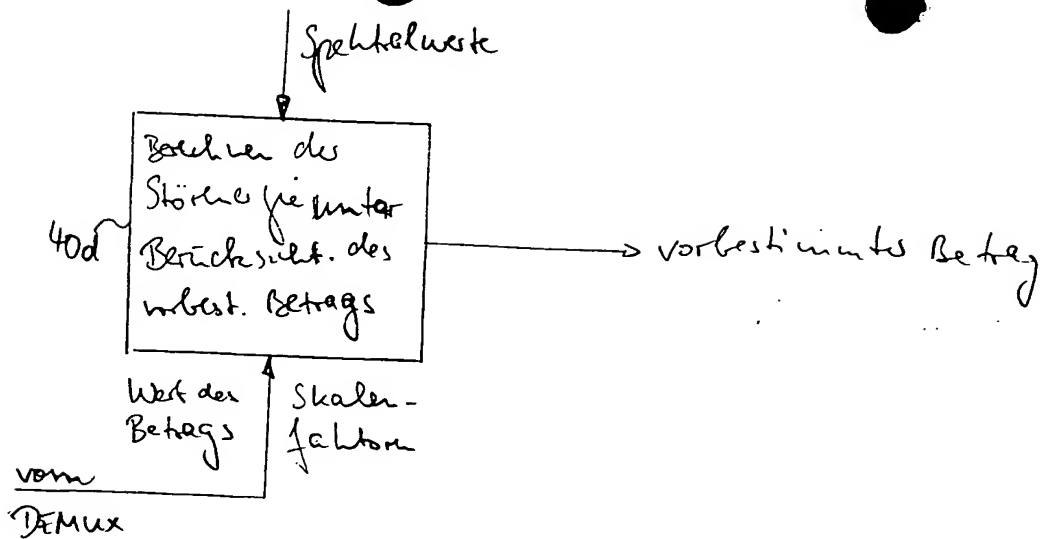 Spektralwerte
Berechnen der
Störenergie unter
40d
Berücksicht. des
vorbest. Betrags
vorbestimmter Betrag
Wert des
Betrags
Skalen-
faktoren
vom
DEMUX